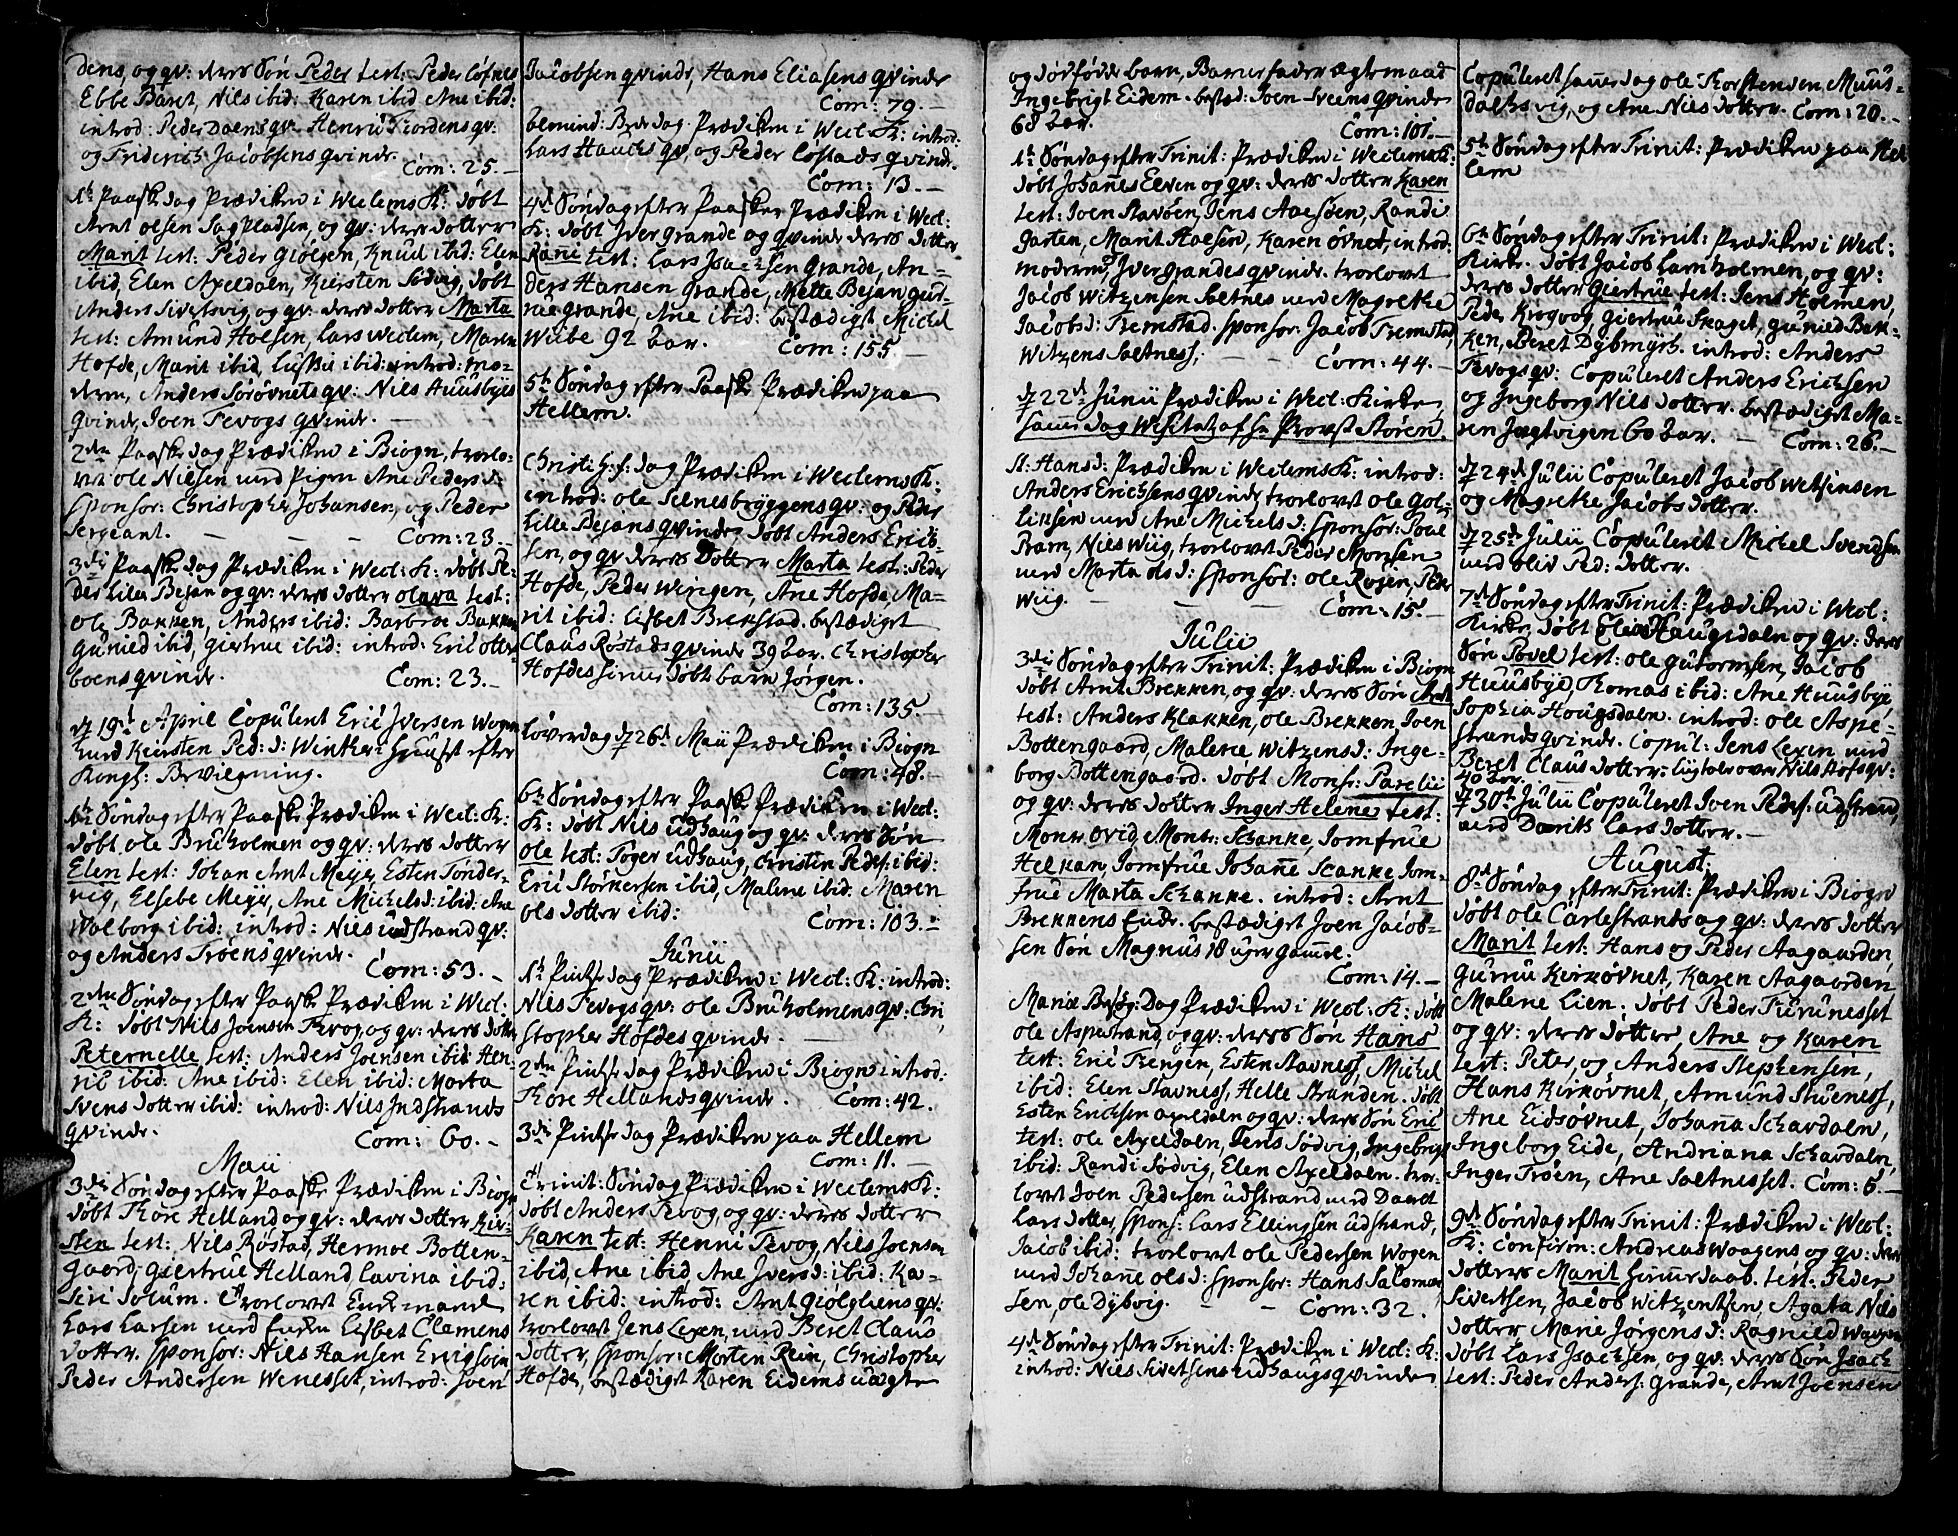 dens, og qv: deres Søn Peder test: Peder Løfnes
Ebbe Baret, Nils ibid: Karen ibid Ane ibid:
introd: Peder Daens qv: Henric Fiordens qv:
og Friderich Jacobsens qvinde.
Com: 25.
1ste Paaske dag Prædiken i Wedlems K: døbt
Arnt Olsen Sagpladsen, og qv: deres dotter
Marit test: Peder Giølgen, Knud ibid: Elen
ibid, Elen Axeldalen, Kiersten Sødvig, døbt
Anders Sivertsvig og qv: deres dotter Marta
test: Amund Hoesen, Lars Wedlem, Maren
Hofde, Marit ibid, ibid: introd: mo-
deren, Anders Sørøvnets qv: Nils Huusbyes
qvinde, Joen Fevogs qvinde.
2den Paaske dag Prædiken i Biogn, trolo-
vet ole Nielsen med Pigen Ane Peders d:
Sponsor: Christopher Johansen, og Peder
Sergeant. Com: 23.
3die Paaske dag Prædiken i Wedl: K: døbt Pe-
der Lilee Bejan og qv: deres dotter olava test:
Ole Bakken, Anders ibid: Barbroe Bakken
Gunied ibid, Giertrue ibid: introd: Eric Otter-
boens qvinde. Com: 23.
d 19de April Copuleret Eric Iversen Wogen
med Kiersten Ped: d: Winther Huuset efter
Kongl: Bevilgning.
1ste Søndag efter Paaske Prædiken i Wedl: K:
døbt ole Bruholmen og qv: deres dotter
Elen test: Johan Arnt Meyer, Esten Tønder-
vig, Elsebe Meyer, Ane Michels d: ibid: Ane
Walborg ibid: introd: Nils udstrand qv:
og Anders Trøens qvinde.
Com: 53.
2den Søndag efter Paaske Prædiken i Wedl:
K: døbt Nils Joensen Fevog og qv: deres dotter
Peternelle test: Anders Joensen ibid: Hen-
ric ibid: Ane ibid: Elen ibid: Marta
Svens dotter ibid: introd: Nils Indstrands
qvinde.
Com: 60.
Maii
3die Søndag efter Paaske Prædiken i Biogn
døbt Thore Helland og qv: deres dotter Kier-
sten test: Nils Røstad, Hermoe Botten-
gaard, Giertrue Helland, Lavina ibid:
Siri Solum. Trolovet Enkemand
Lars Larsen med Enken Lisbet Clemens
dotter. Sponsor: Nils Hansen
Peder Andersen Wenesset, introd: Joen
Jacobsen qvinde, Hans Eliasens qvinde
Com: 79.
alemind: Bededag Prædiken i Wedl: K: introd:
Lars Hauchs qv, og Peder Løstads qvinde.
Com: 13.
4de Søndag efter Paaske Prædiken i Wedl:
K: døbt Iver Grande og qvinde deres dotter
Rañi test: Lars Isachsen Grande, An-
ders Hansen Grande, Mette Bejan
Grande, Ane ibid: bestædiget Michel
Wiibe 92 aar. Com: 155.
5te Søndag efter Paaske Prædiken paa
Hellem.
Christi H: f: dag Prædiken i Wedlems K:
introd: ole Selnesbryggens qv: og Peder
Lille Bejans qvinde, døbt Anders Eric-
sen, og qv: deres Dotter Marta test: Peder
Hofde, Peder Wingen, Ane Hofde, Ma-
rit ibid: Lisbet Brekstad. bestædiget
Claus Røstads qvinde 39 aar. Christopher
Hofdes hiemedøbt barn Jørgen.
Com: 135.
Løverdag d 26de Maii Prædiken i Biogn
Com: 48.
6te Søndag efter Paaske Prædiken i Wedl:
K: døbt Nils udhaug og qv: deres Søn
Ole test: Toger udhaug, Christen Peders: ibid:
Eric Størkersen ibid, Malene ibid: Maren
ols dotter ibid: Com: 103.
Junii
1ste Pintse dag Prædiken i Wedl: K: introd:
Nils Fevogs qv: ole Bruholmens qv: Chri-
stopher Hofdes qvinde.
2den Pintse dag Prædiken i Biogn introd:
Thore Hellands qvinde. Com: 42.
3die Pintse dag Prædiken paa Hellem
Com: 11.
Trinit: Søndag Prædiken i Wedlems K:
døbt Anders Fevog, og qv: deres dotter
Karen test: Henni Fevog, Nils Joensen
ibid, Ane ibid, Ane Ivers d: ibid: Ka-
ren ibid: introd: Arnt Giølgliens qv:
trolovet Jens Lexen, med Beret Claus
dotter, Sponsor: Morten Rein, Christopher
Hofde, bestædiget Karen Eidems uægte
og dødfødde barn, Barnefader ægtemand
Ingebrigt Eidem. bestæd: Joen Sveens qvinde
68 aar. Com: 101.
1ste Søndag efter Trinit: Prædiken i Wedlems K:
døbt Johañes Elvin og qv: deres dotter Karen
test: Joen Stavøen, Jens Aaesøen, Randi
Garten, Marit Hoesen, Karen Øvnet, introd:
moderen, Iver Grandes qvinde. trolovet
Jacob Witzensen Sætnes med Magrethe
Jacobs d: Fremstad. Sponsor: Jacob Fremstad,
Witzens Sætness; Com: 44.
d 22de Junii Prædiken i Wedl: Kirke,
sam̃e dag Visitatz af Hr Provst Støren.
St: Hans d: Prædiken i Wedlems K: introd:
Anders Erichsens qvinde, trolovet ole Gol-
liksen med Ane Michels d: Sponsor: Poul
Pram, Niels Wiig, trolovet Peder Monsen
med Marta ols d: Sponsor: ole Rosen, Peder
Wiig. Com: 15.
Julii
3die Søndag efter Trinit: Prædiken i Biogn
døbt Arnt Brekken, og qv: deres Søn Arnt
test: Anders Klakken, ole Brekken, Joen
Bottengaard, Malene Witzens d: Inge-
borg Bottengaard. døbt Monsr: Parelii
og qv: deres dotter Inger Helene test:
Monsr Ovid, Monsr: Schanke, Jomfrue
Helkan, Jomfrue Johañe Scanke, Jom-
frue Marta Schanke. introd: Arnt
Brekkens Enke. bestædiget Joen Jacob-
sen Søn Magnus 18 uger gam̃el.
Com: 14.
Mariæ Besøg: Dag Prædiken i Wedl: K: døbt
ole Aspestrand, og qv: deres Søn Hans
test: Eric Frengen, Esten Stavness, Michel
ibid: Elen Stavness, Helle Stranden. døbt
Esten Erichsen Axeldalen og qv: deres Søn Eric
test: ole Axeldalen, Jens Sødvig, Ingebrigt
ibid: Randi Sødvig, Elen Axeldalen. tro-
lovet Joen Pedersen udstrand med Daaret
Lars dotter, Spons: Lars Ellingsen udstrand,
Jacob ibid: trolovet ole Pedersen Wogen
med Johañe ols d: Sponsor: Hans Salomon
sen, ole Dybvig. Com: 32.
4de Søndag efter Trinit: Prædiken i Wedl: K:
introd: Nils Sivertsens udhaugs qvinde
Copuleret sam̃e dag ole Thorstensen Muus-
dalsvig, og Ane Nils dotter. Com: 20.
5te Søndag efter Trinit: Prædiken paa Hel-
lem
6te Søndag efter Trinit: Prædiken i Wedl:
Kirke. døbt Jacob Lamholmen, og qv:
deres dotter Giertrue test: Jens Holmen,
Peder Krogvog, Giertrue Skaget, Gunied Bak-
ken, Beret Dybmyr. introd: Anders
Fevogs qv: Copuleret Anders Erichsen
og Ingeborg Nils dotter. bestædiget Ma-
ren Jægtvigen 60 aar. Com: 26.
d 24de Julii Copuleret Jacob Wetzensen
og Magrethe Jacobs dotter.
d 25de Julii Copuleret Michel Svendsen
med oliv Ped: dotter.
7de Søndag efter Trinit: Prædiken i Wedl:
Kirke. døbt Haugsdalen og qv: deres
Søn Povel test: ole Gutormsen, Jacob
Huusbye, Thomas ibid: Ane Huusbye,
Sophia Hougsdalen. introd: ole Aspe-
strands qvinde. Copul: Jens Lexen med
Beret Claus dotter: Liigtale over Nils Hofs qv:
40 aar.
d 30te Julii Copuleret Joen Peders: udstrand,
med Dorith Lars dotter.
August:
8de Søndag efter Trinit: Prædiken i Biogn
døbt ole Carlestrands og qv: deres dotter
Marit test: Hans og Peder Aagaarden,
Guruu Kirkøvnet, Karen Aagaarden
Malene Lien. døbt Peder Furunesset
og qv: deres døtter, Ane og Karen
test: Peter, og Anders Stephensen,
Hans Kirkøvnet, Amund Stueness,
Ane Eidsøvnet, Johaña Schavdalen,
Ingeborg Eide, Andriana Schavdalen,
Inger Trøen, Ane Sætnesset. Com: 5.
9de Søndag efter Trinit: Prædiken i Wedl:
K: Confirm: Andreas Woagens og qv: deres
dotters Marit hiemedaab. test: Peder
Sivertsen, Jacob Witzentsen, Agata Nils
dotter, Marie Jørgens d: Ragnild Wogen
døbt Lars Isachsen, og qv: deres Søn Isach
test: Peder Anders: Grande, Arnt Joensen